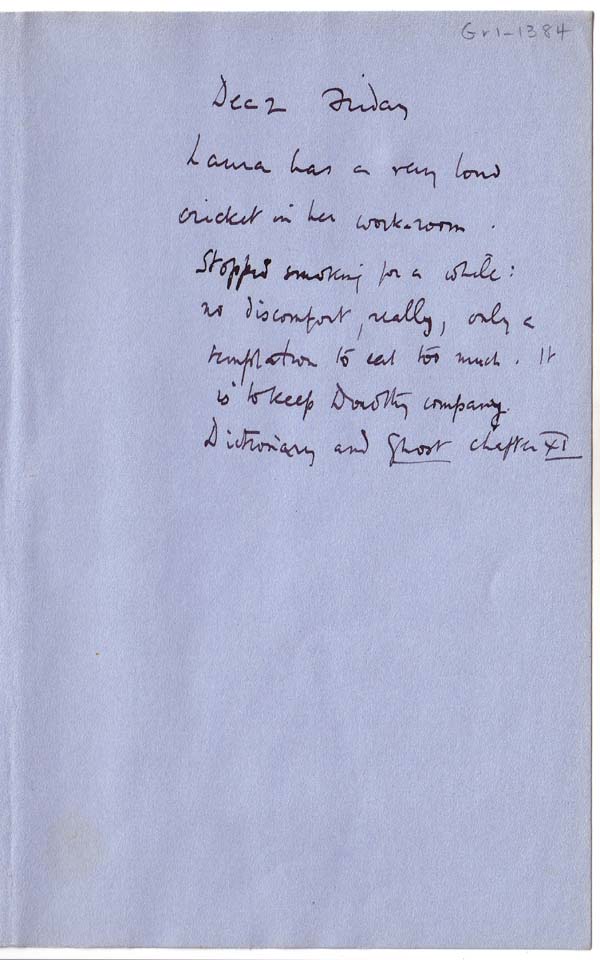 Gr1-1384
Dec 2 Friday
Laura has a very loud
cricket in her work-room.
Stopped smoking for a while:
no discomfort, really, only a
temptation to eat too much. It
is to keep Dorothy company.
Dictionary and Ghost chapter XI